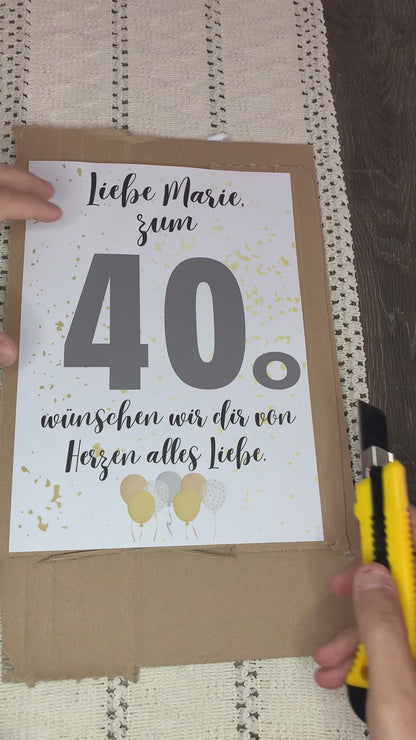 Liebe Marie,
zum
40.
wünschen wir dir von
Herzen alles Liebe.